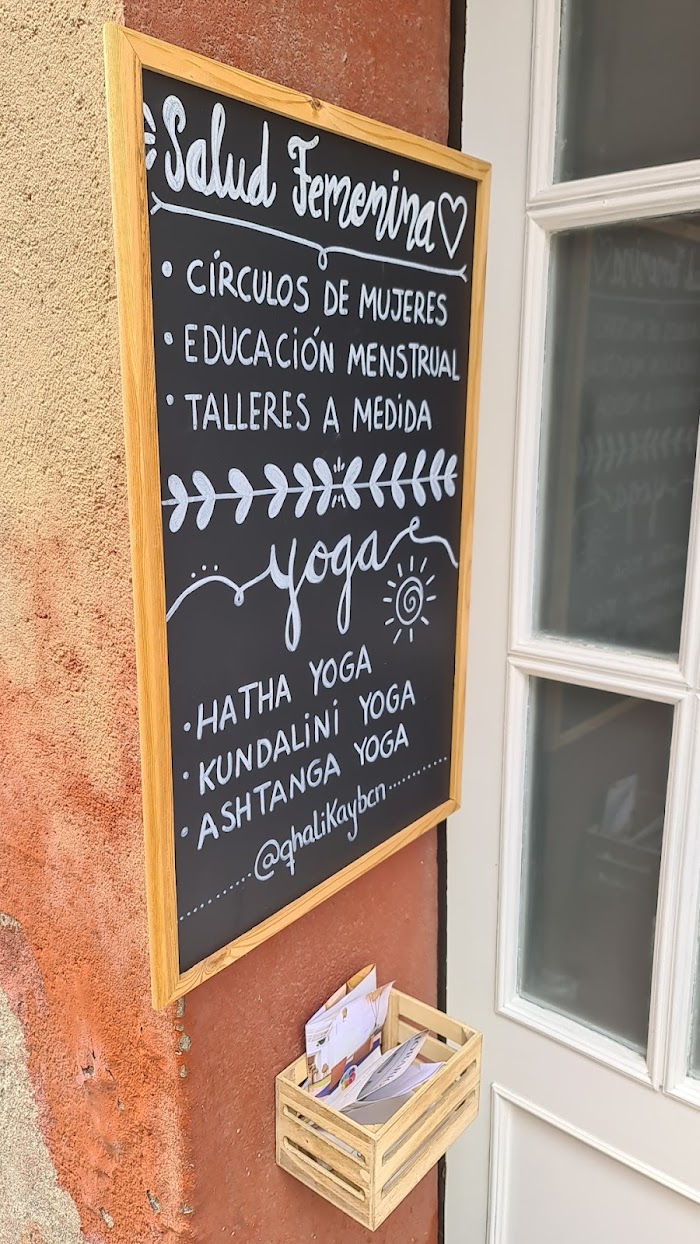 Salud Femenina
• CÍRCULOS DE MUJERES
• EDUCACIÓN MENSTRUAL
• TALLERES A MEDIDA
yoga
• HATHA YOGA
• KUNDALINI YOGA
• ASHTANGA YOGA
@qhaliKaybcn